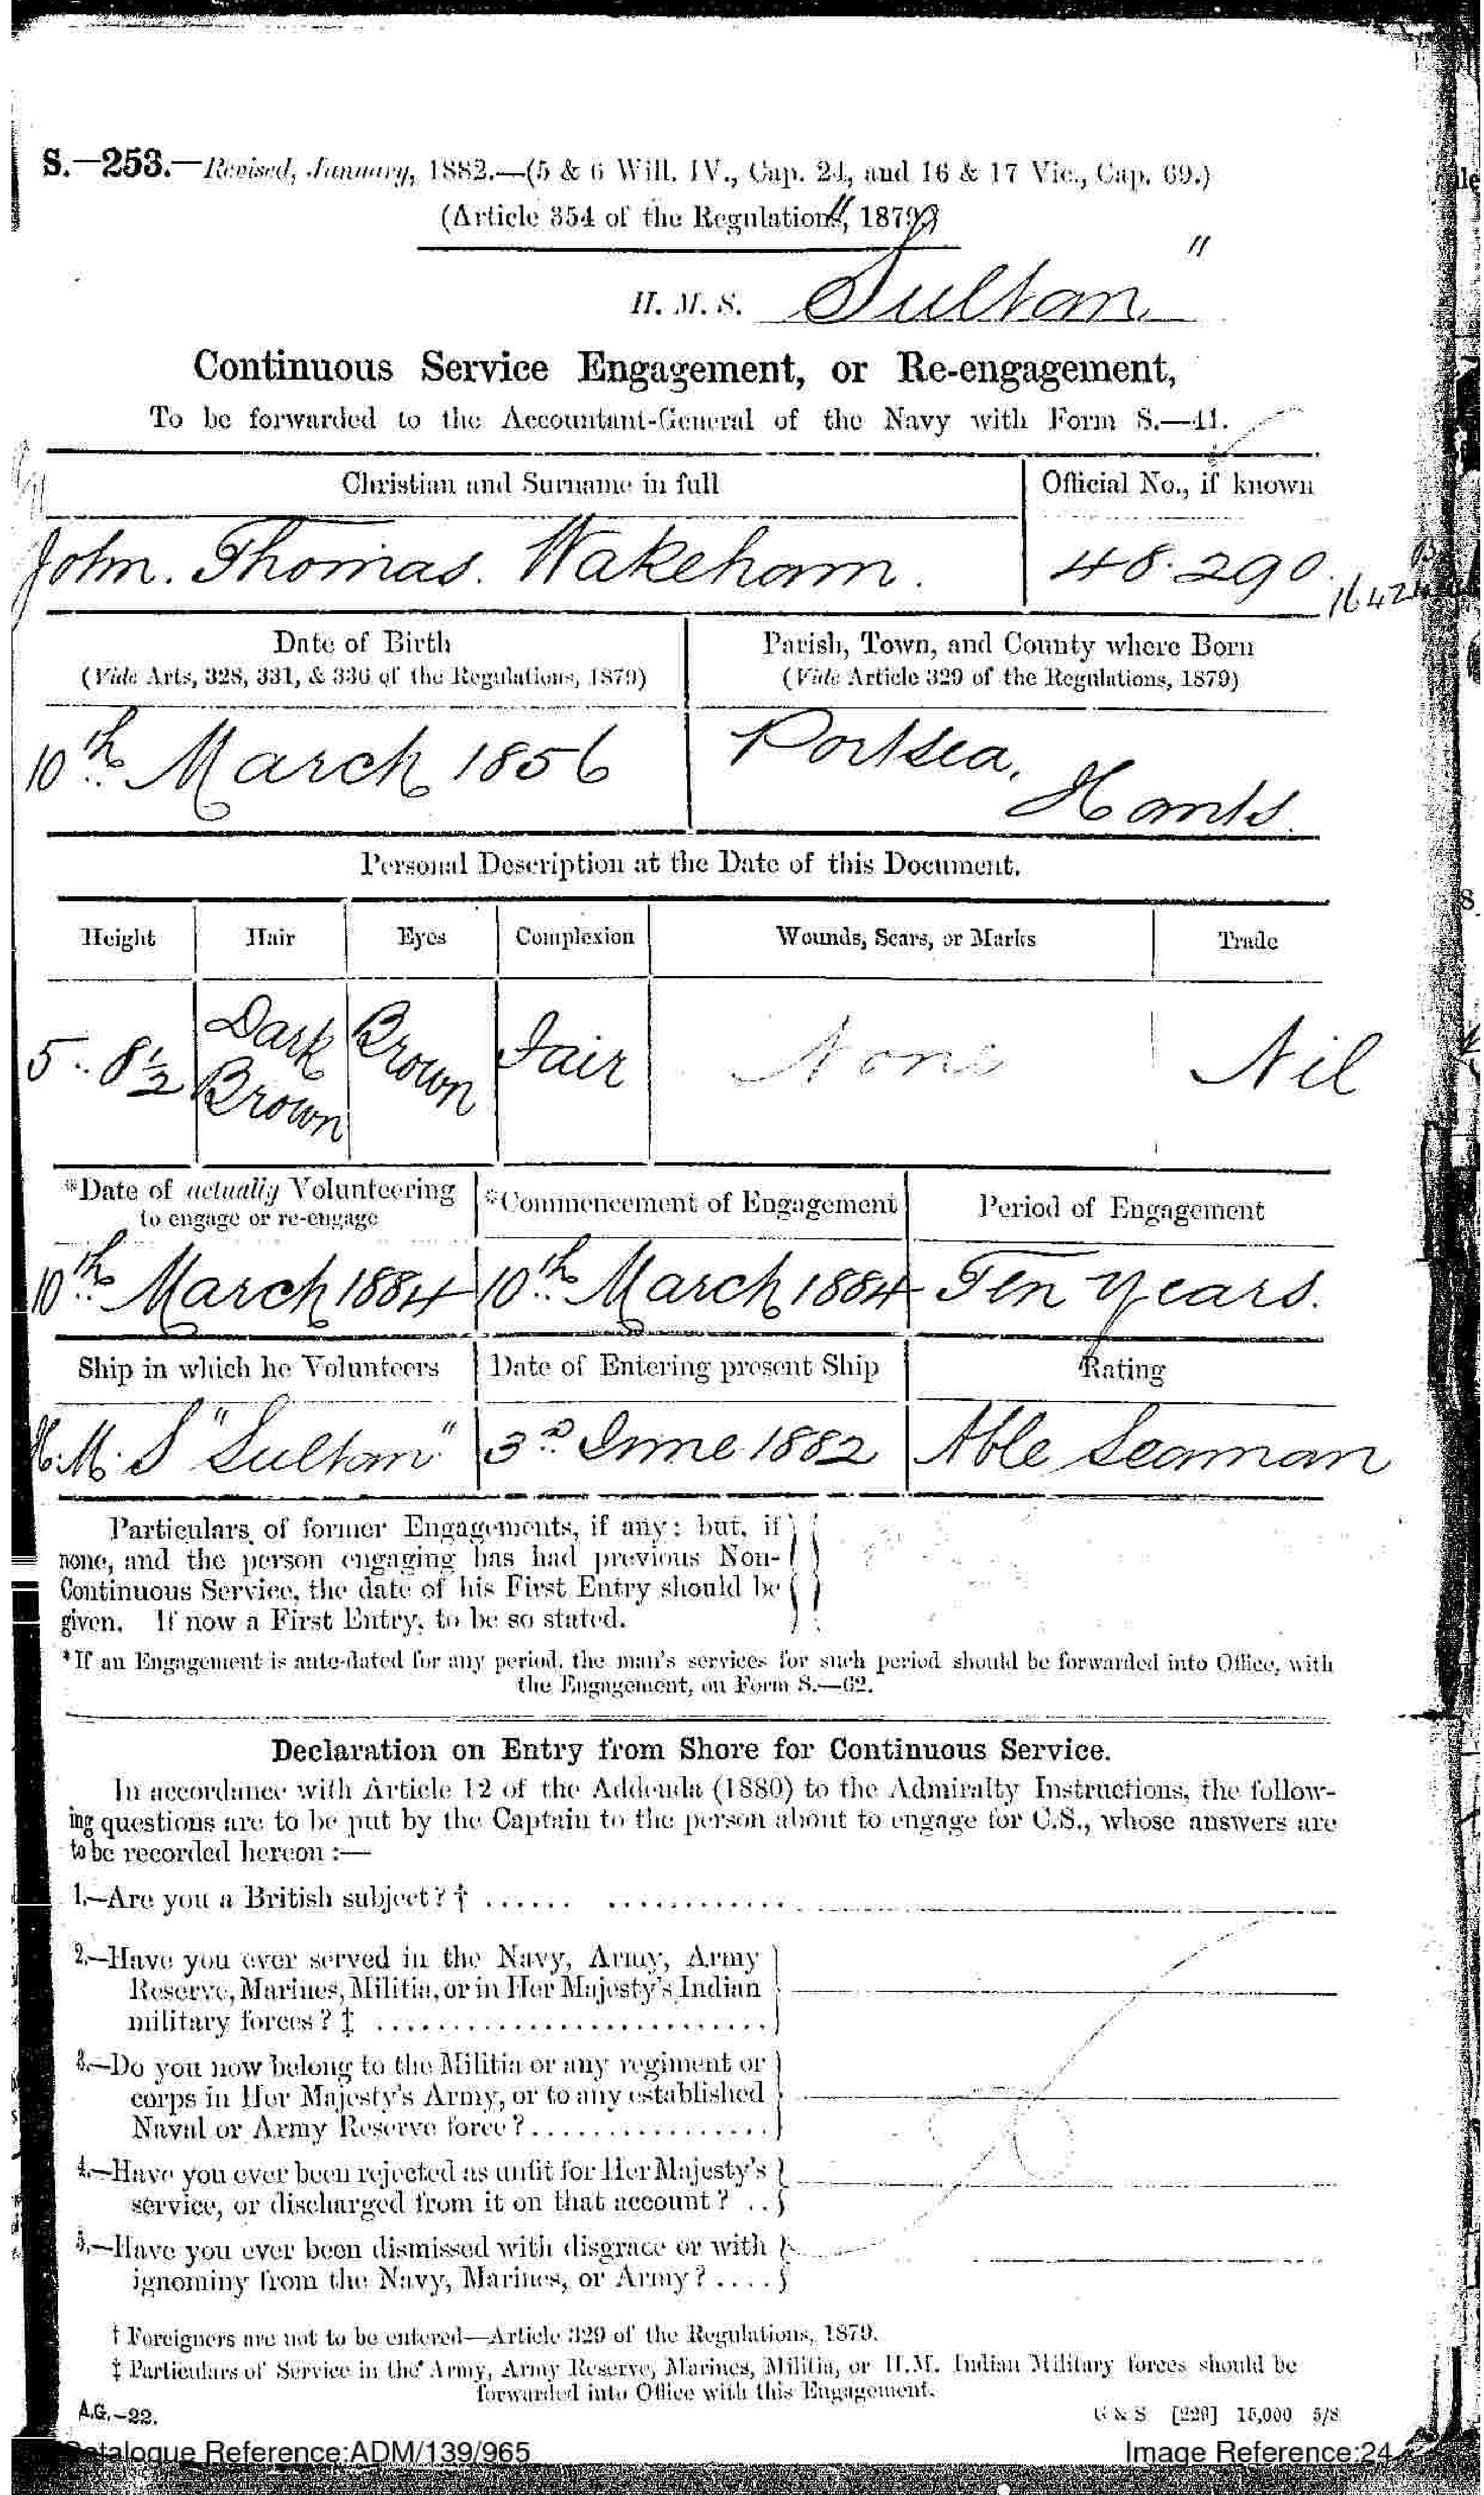 S.—253.—Revised, January, 1882.—(5 & 6 Will. IV., Cap. 24, and 16 & 17 Vic., Cap. 69.)
(Article 354 of the Regulations, 1879)
H. M. S. "Sultan"
Continuous Service Engagement, or Re-engagement,
To be forwarded to the Accountant-General of the Navy with Form S.—41.
Christian and Surname in full Official No., if known
John. Thomas. Wakeham. 48.290.
Date of Birth Parish, Town, and County where Born
(Vide Arts, 328, 331, & 336 of the Regulations, 1879) (Vide Article 329 of the Regulations, 1879)
10th March 1856 Portsea, Hants
Personal Description at the Date of this Document.
Height Hair Eyes Complexion Wounds, Scars, or Marks Trade
5.. 8½ Dark Brown Brown Fair None Nil
*Date of actually Volunteering *Commencement of Engagement Period of Engagement
to engage or re-engage
10th March 1884 10th March 1884 Ten years.
Ship in which he Volunteers Date of Entering present Ship Rating
H.M.S "Sultan" 3rd June 1882 Able Seaman
Particulars of former Engagements, if any; but, if
none, and the person engaging has had previous Non-
Continuous Service, the date of his First Entry should be
given. If now a First Entry, to be so stated.
*If an Engagement is ante-dated for any period, the man's services for such period should be forwarded into Office, with
the Engagement, on Form S.—62.
Declaration on Entry from Shore for Continuous Service.
In accordance with Article 12 of the Addenda (1880) to the Admiralty Instructions, the follow-
ing questions are to be put by the Captain to the person about to engage for C.S., whose answers are
to be recorded hereon :—
1.—Are you a British subject? †
2.—Have you ever served in the Navy, Army, Army
Reserve, Marines, Militia, or in Her Majesty's Indian
military forces? ‡
3.—Do you now belong to the Militia or any regiment or
corps in Her Majesty's Army, or to any established
Naval or Army Reserve force?
4.—Have you ever been rejected as unfit for Her Majesty's
service, or discharged from it on that account?
5.—Have you ever been dismissed with disgrace or with
ignominy from the Navy, Marines, or Army?
† Foreigners are not to be entered—Article 329 of the Regulations, 1879.
‡ Particulars of Service in the Army, Army Reserve, Marines, Militia, or H.M. Indian Military forces should be
forwarded into Office with this Engagement.
A.G.—22. G & S [229] 15,000 5/8
Catalogue Reference:ADM/139/965 Image Reference:24